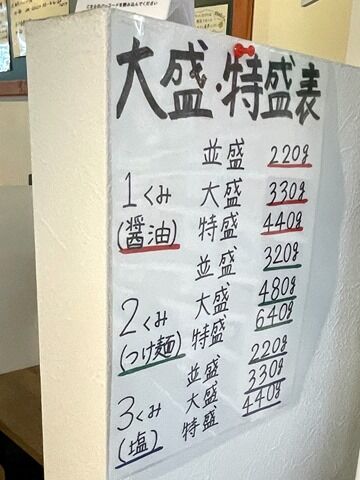 大盛・特盛表
並盛 220g
1くみ 大盛 330g
(醤油) 特盛 440g
並盛 320g
2くみ 大盛 480g
(つけ麺) 特盛 640g
並盛 220g
3くみ 大盛 330g
(塩) 特盛 440g